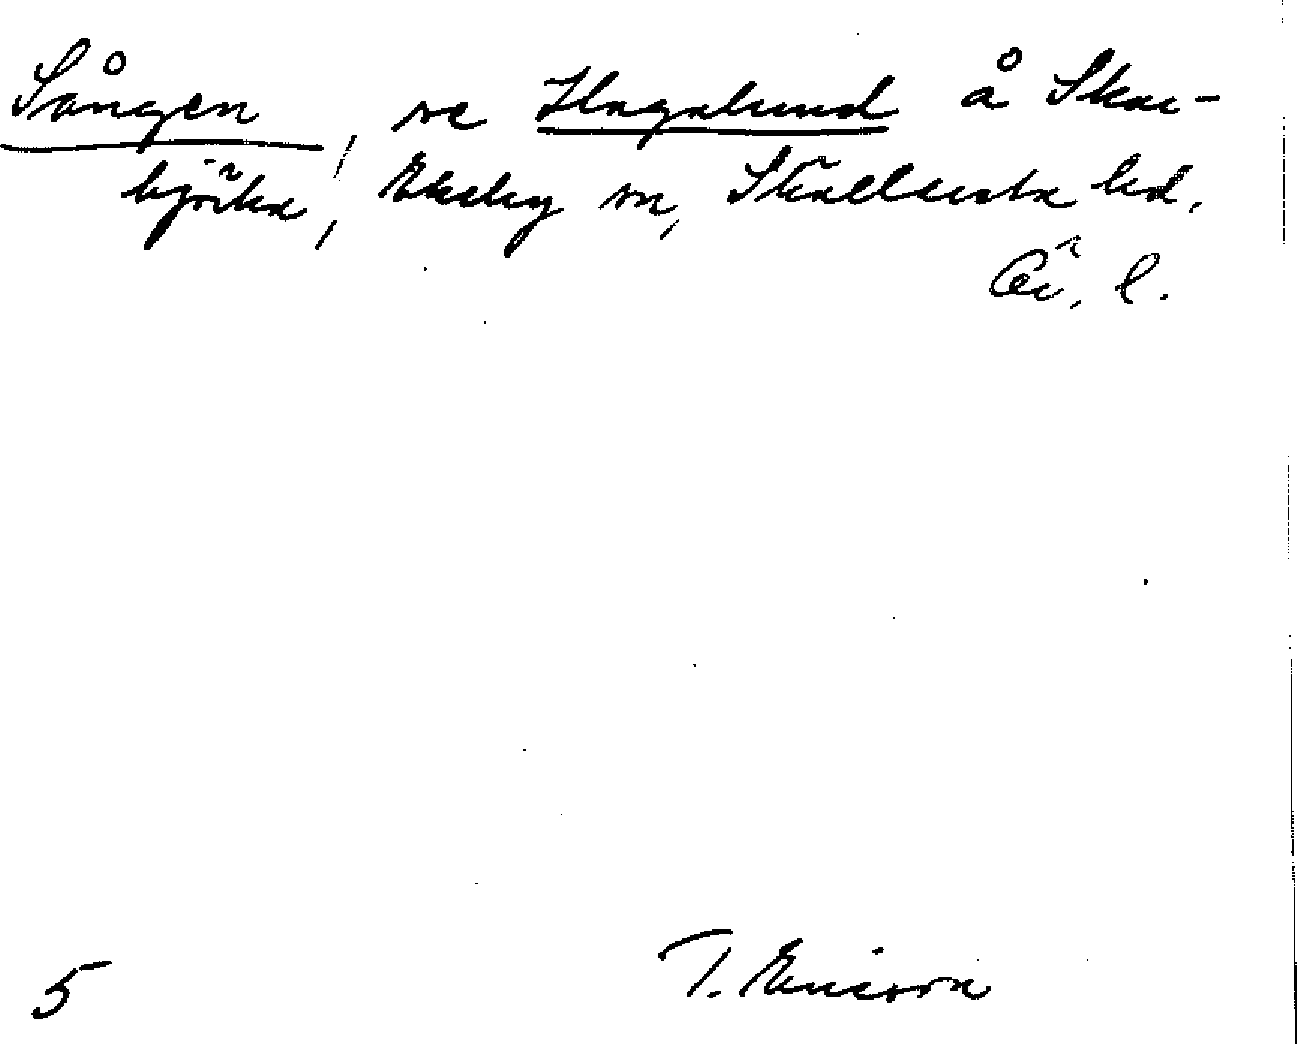 Sången, se Hagalund å Skar-
björka, Ekeby sn, Skållersta hd.
Ör. l.
5 T. Ericson